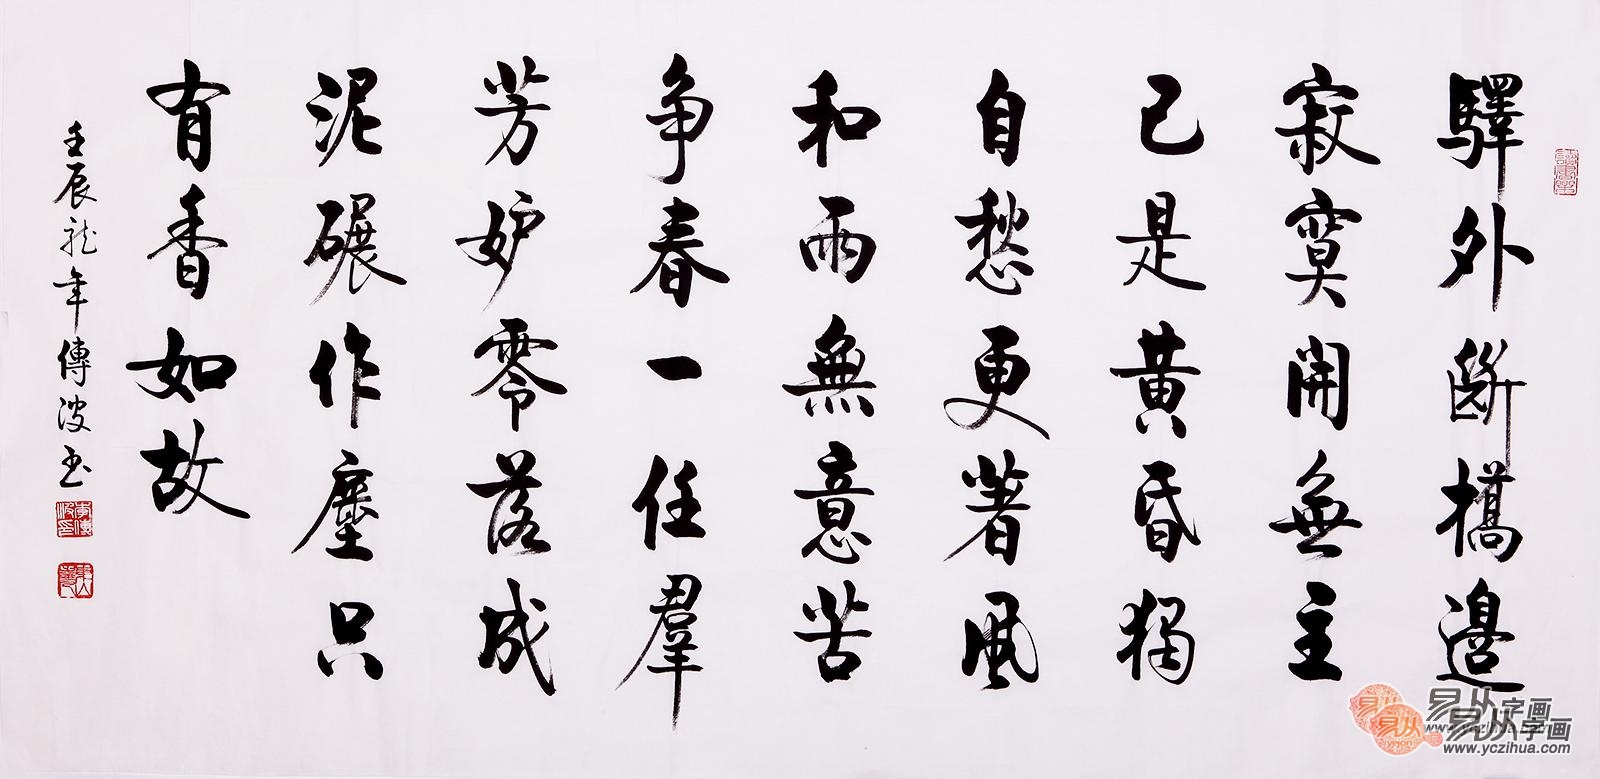 驛外斷橋邊
寂寞開無主
已是黃昏獨
自愁更著風
和雨無意苦
争春一任羣
芳妒零落成
泥碾作塵只
有香如故
壬辰龍年傳波书
易从字画
www.yczihua.com
易从字画
www.yczihua.com